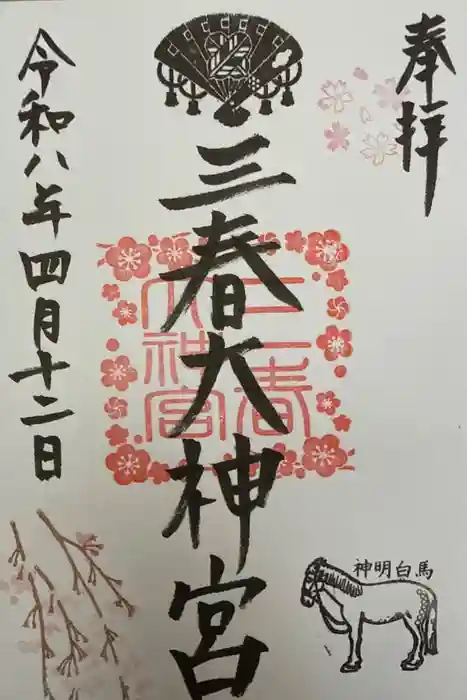 奉拝
三春大神宮
三春
大神宮
令和八年四月十二日
神明白馬